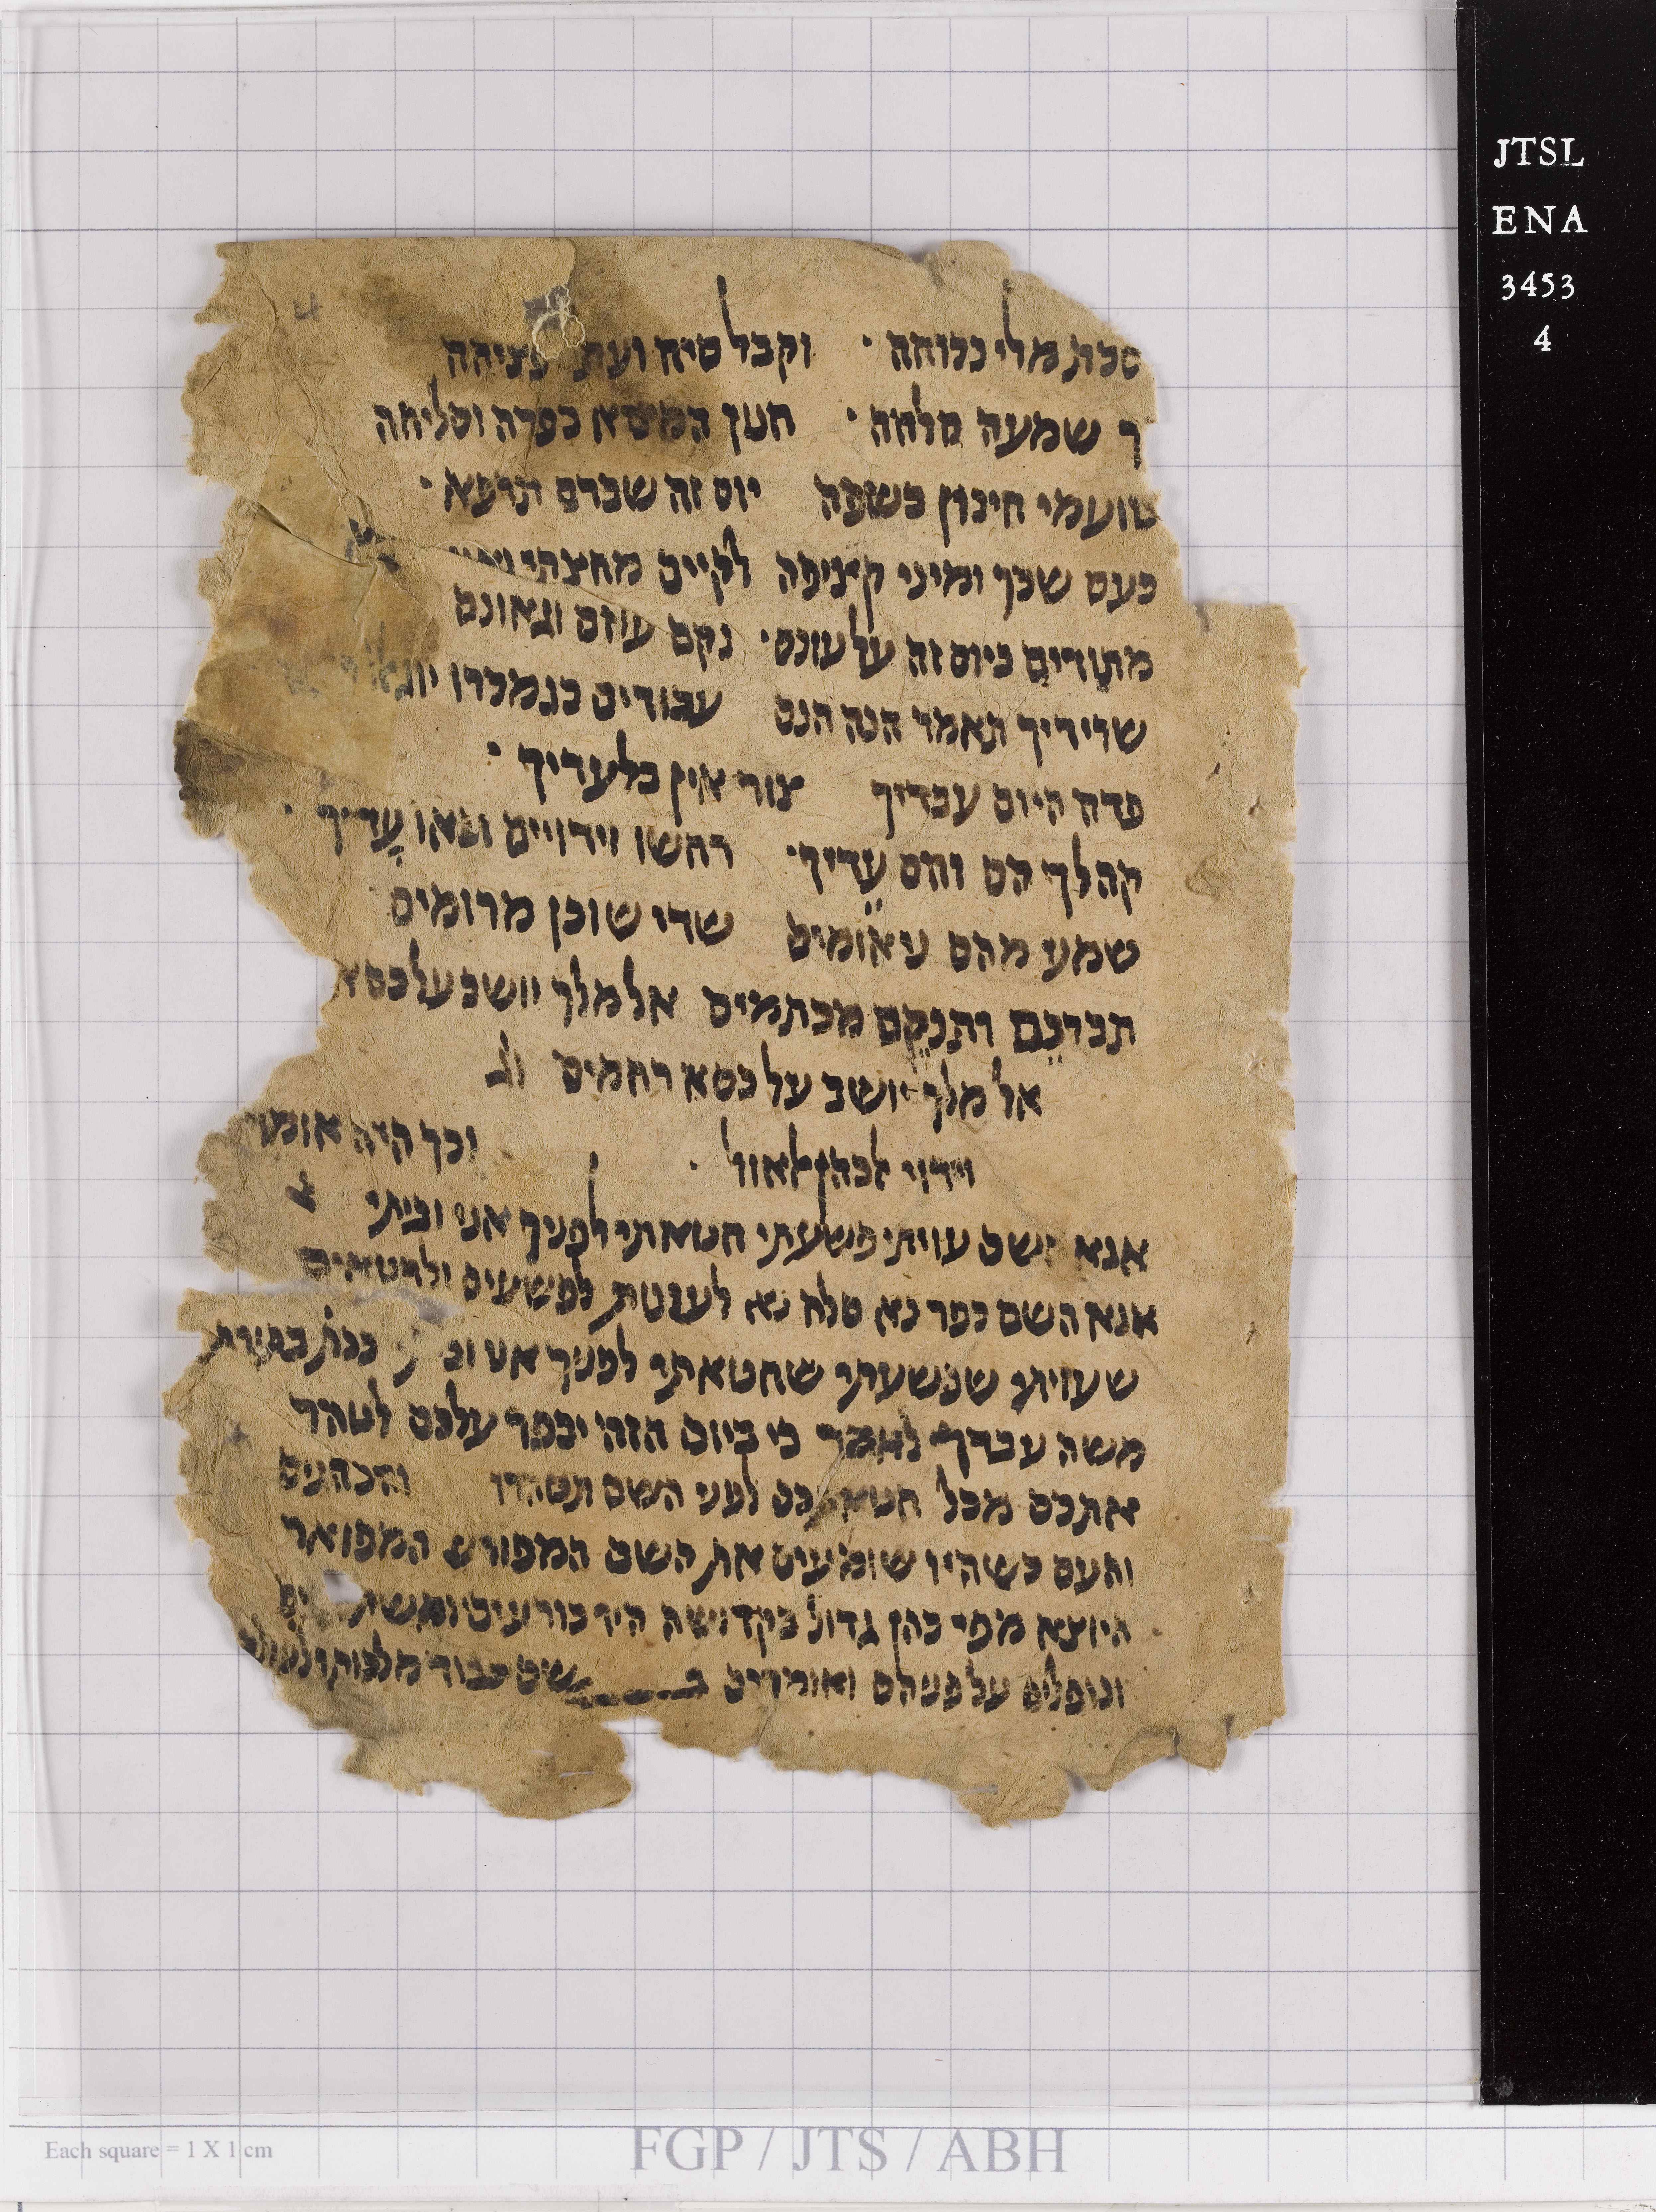 סכת מלי נכוחה · וקבל שיח ועת
ך שמעה סלחה · חטן המצא כפרה וסליחה
טועמי חינון בשפה יום זה שברם תרפא ·
כעס שכך ומיני קציפה לקיים מחצתי
מתודים ביום זה על עונם · נקם עוזם וגאונם
שרידיך תאמר הנה הנם עבודים בנמכרו
פדה היום עבדיך צור אין בלעדיך ·
קהלך הם וחם עדיך · רחשו וידויים ובאו עדיך ·
שמע מהם עיאומים שדי שוכן מרומים
תברכם ותנקם מכתמים אל מלך יושב על כסא
אל מלך יושב על כסא רחמים וג
וידוי לכהן לאוול · וכך היה אומר
אנא השם עויתי פשעתי חטאתי לפניך אני וביתי
אנא השם כפר נא סלח נא לעונות לפשעים ולחטאים
שעויתי שפשעתי שחטאתי לפניך אני ככת בתורת
משה עבדך לאמר כי ביום הזה יכפר עלכם לטהר
אתכם מכל חטאתכם לפני השם תטהרו והכהנים
והעם כשהיו שומעים את השם המפורש המפואר
היוצא מפי כהן גדול בקדושה היו כורעים
ונופלים על פניהם ואומרים ב שם כבוד מלכותו לעולם
JTSL
ENA
3453
4
Each square = 1 X 1 cm
FGP / JTS / ABH